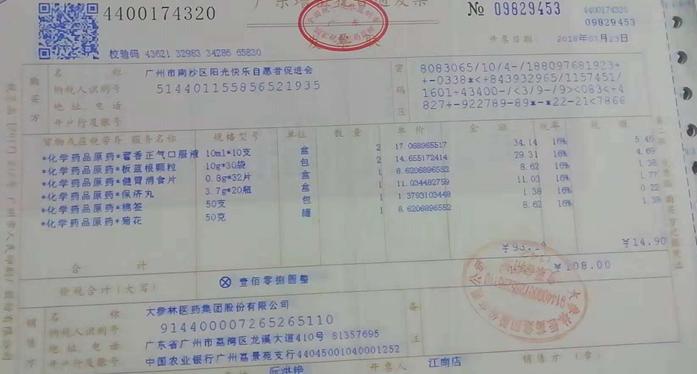 4400174320
№ 09829453
4400174320
09829453
校验码 43621 32983 34286 65830
开票日期
购买方
名 称: 广州市南沙区阳光快乐自愿者促进会
纳税人识别号: 514401155856521935
地址、电话
开户行及账号
密码区
8083065/10/4-/188097681923+
+-0338*<+843932965/1157451/
1601-43400-/<3/9-/9><083<-4
827+-922789-89*-*22-21<7866
货物或应税劳务、服务名称 规格型号 单位 数量 单价 金额 税率 税额
*化学药品原药*藿香正气口服液 10ml*10支 盒 2 17.068965517 34.14 16% 5.46
*化学药品原药*板蓝根颗粒 10g*30袋 包 2 14.655172414 29.31 16% 4.69
*化学药品原药*健胃消食片 0.8g*32片 盒 1 8.6206896552 8.62 16% 1.38
*化学药品原药*保济丸 3.7g*20瓶 盒 1 11.034482759 11.03 16% 1.77
*化学药品原药*棉签 50支 包 1 1.3793103448 1.38 16% 0.22
*化学药品原药*菊花 50克 罐 1 8.6206896552 8.62 16% 1.38
合 计 ¥14.90
价税合计(大写) ⊗壹佰零捌圆整 ¥108.00
销售方
名 称: 大参林医药集团股份有限公司
纳税人识别号: 9144000072652651​10
地址、电话: 广东省广州市荔湾区龙溪大道410号 81357695
开户行及账号: 中国农业银行广州荔景苑支行44045001040001252
备注
开票人: 江南店
销售方:(章)